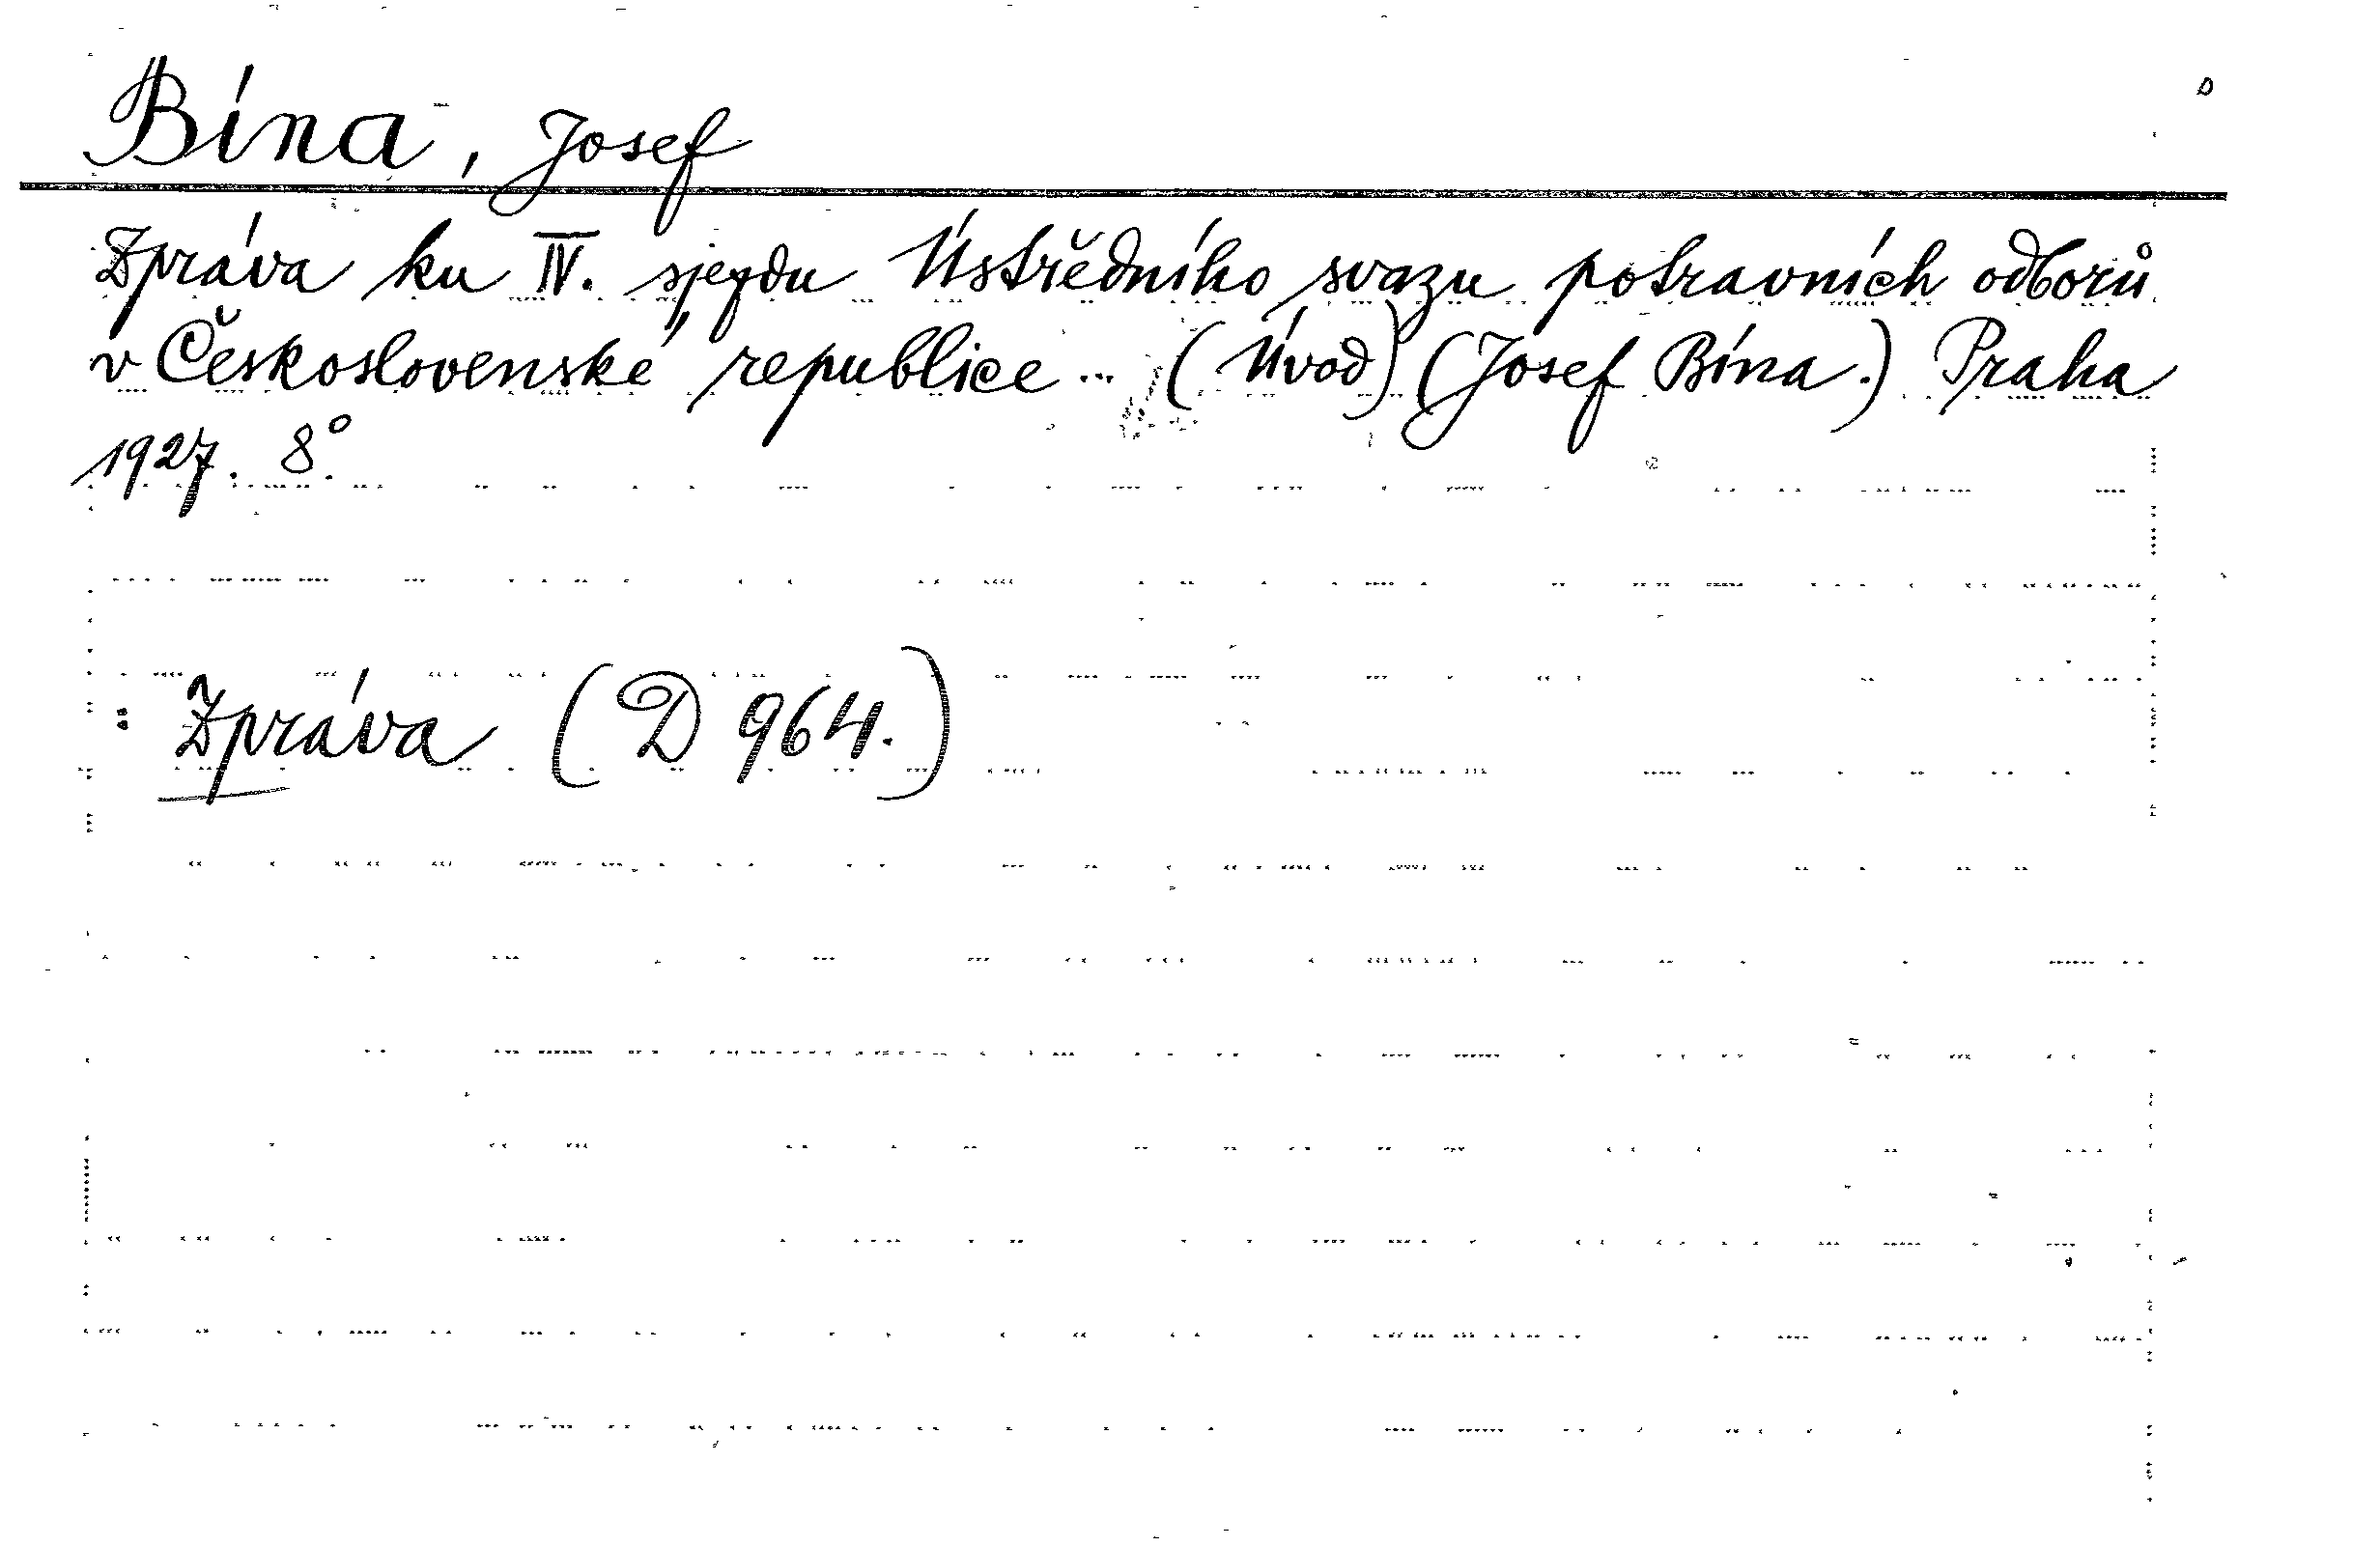 Bína, Josef
Zpráva ku IV. sjezdu Ústředního svazu potravních odborů
v Československé republice... (Úvod) (Josef Bína.) Praha
1927. 8°.
: Zpráva (D 964.)